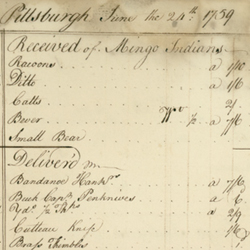 Pittsburgh June the 24th 1759
Received of Mingo Indians
Racoons a 1/6
Ditto a 1/6
Catts 2/
Bever a 7/6
Small Bear
Deliver'd
Bandanoe Hankr. a 7/6
Buck Capd. Penknives a 6
a 2/9
Cutteau Knife 1/6
Brass Thimbles